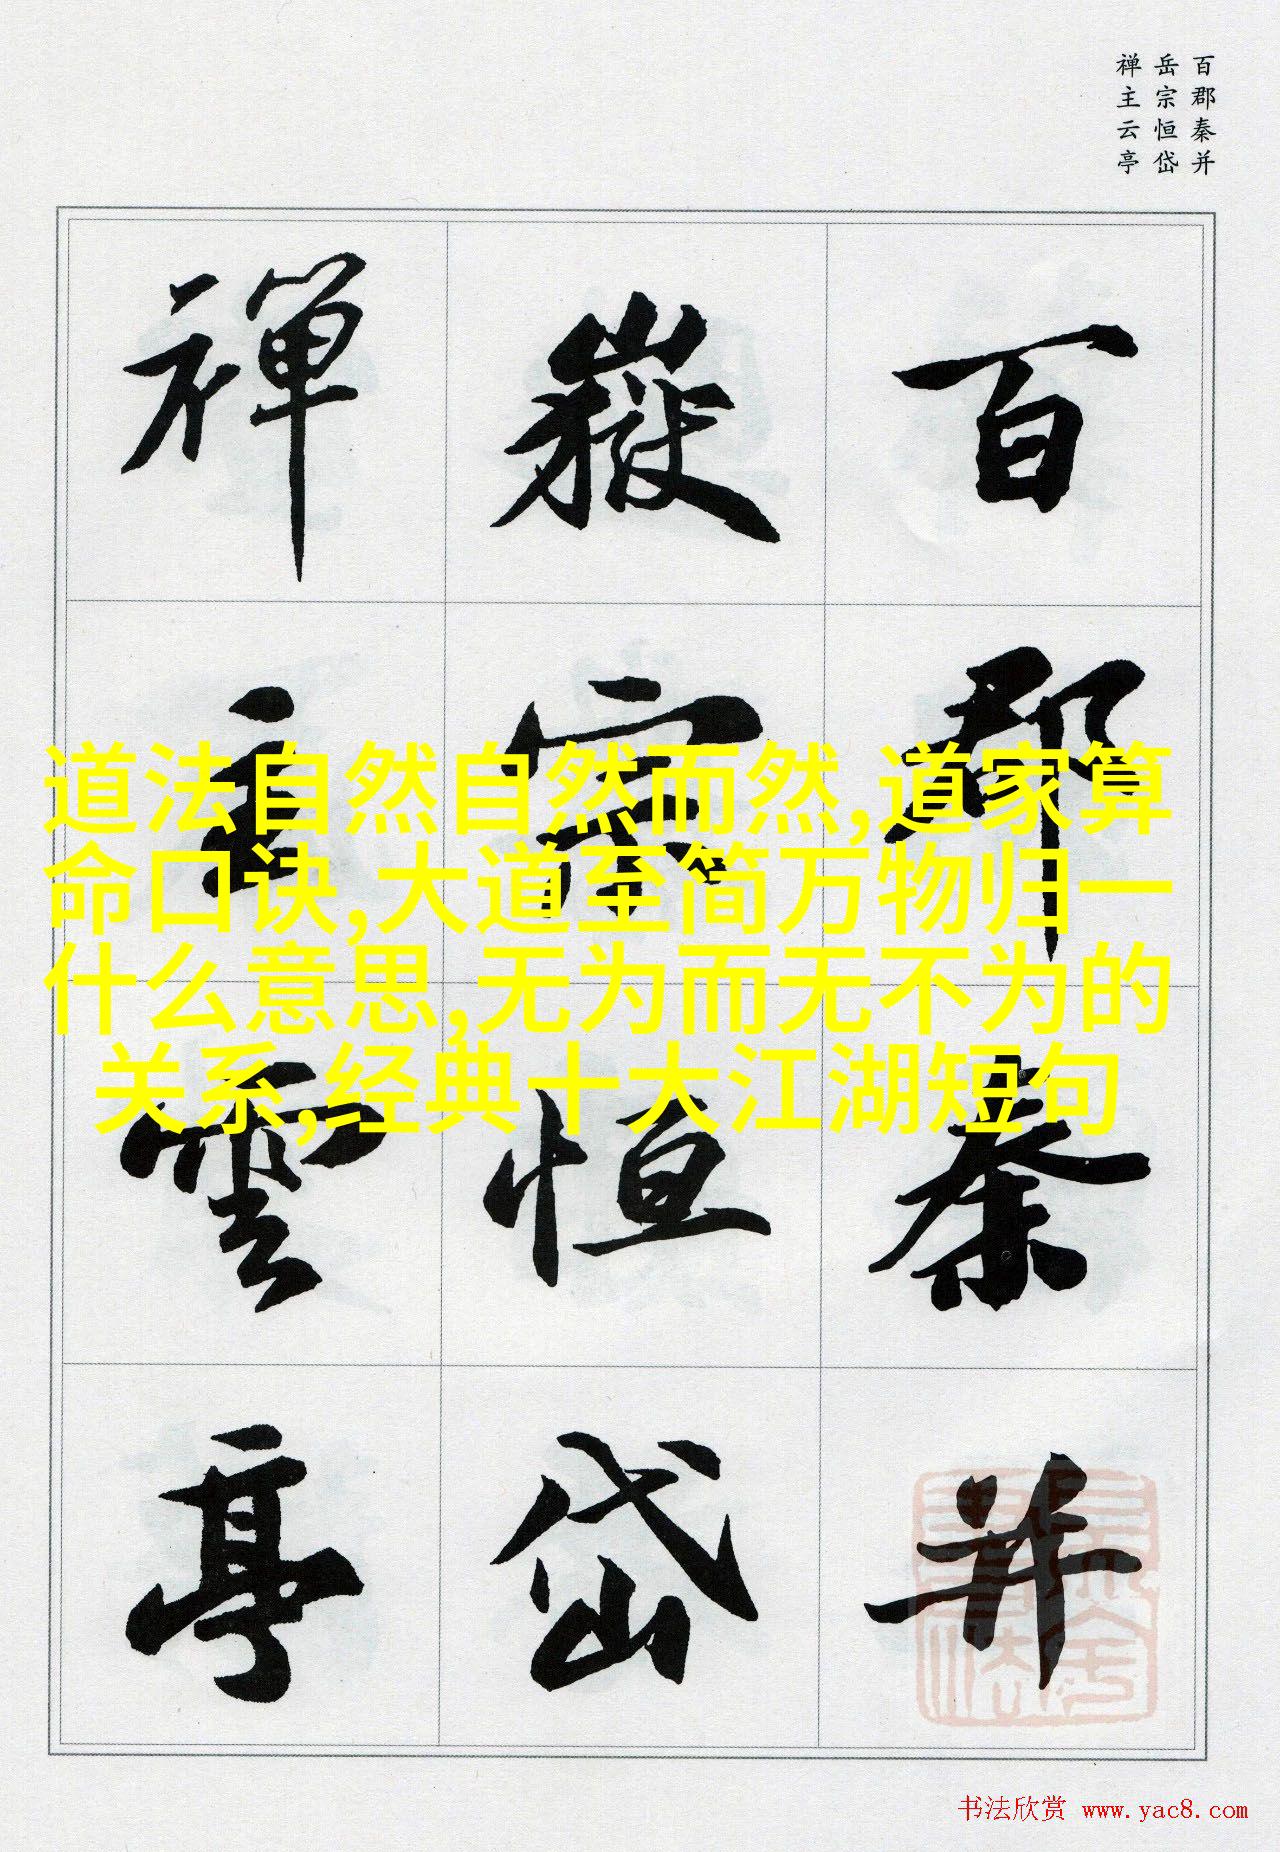 百郡秦并
岳宗恒岱
禅主云亭
百郡秦并
嶽宗恒岱
禪主雲亭
道法自然自然而然,道家算
命口诀,大道至简万物归一
什么意思,无为而无不为的
关系,经典十大江湖短句
书法欣赏 www.yac8.com